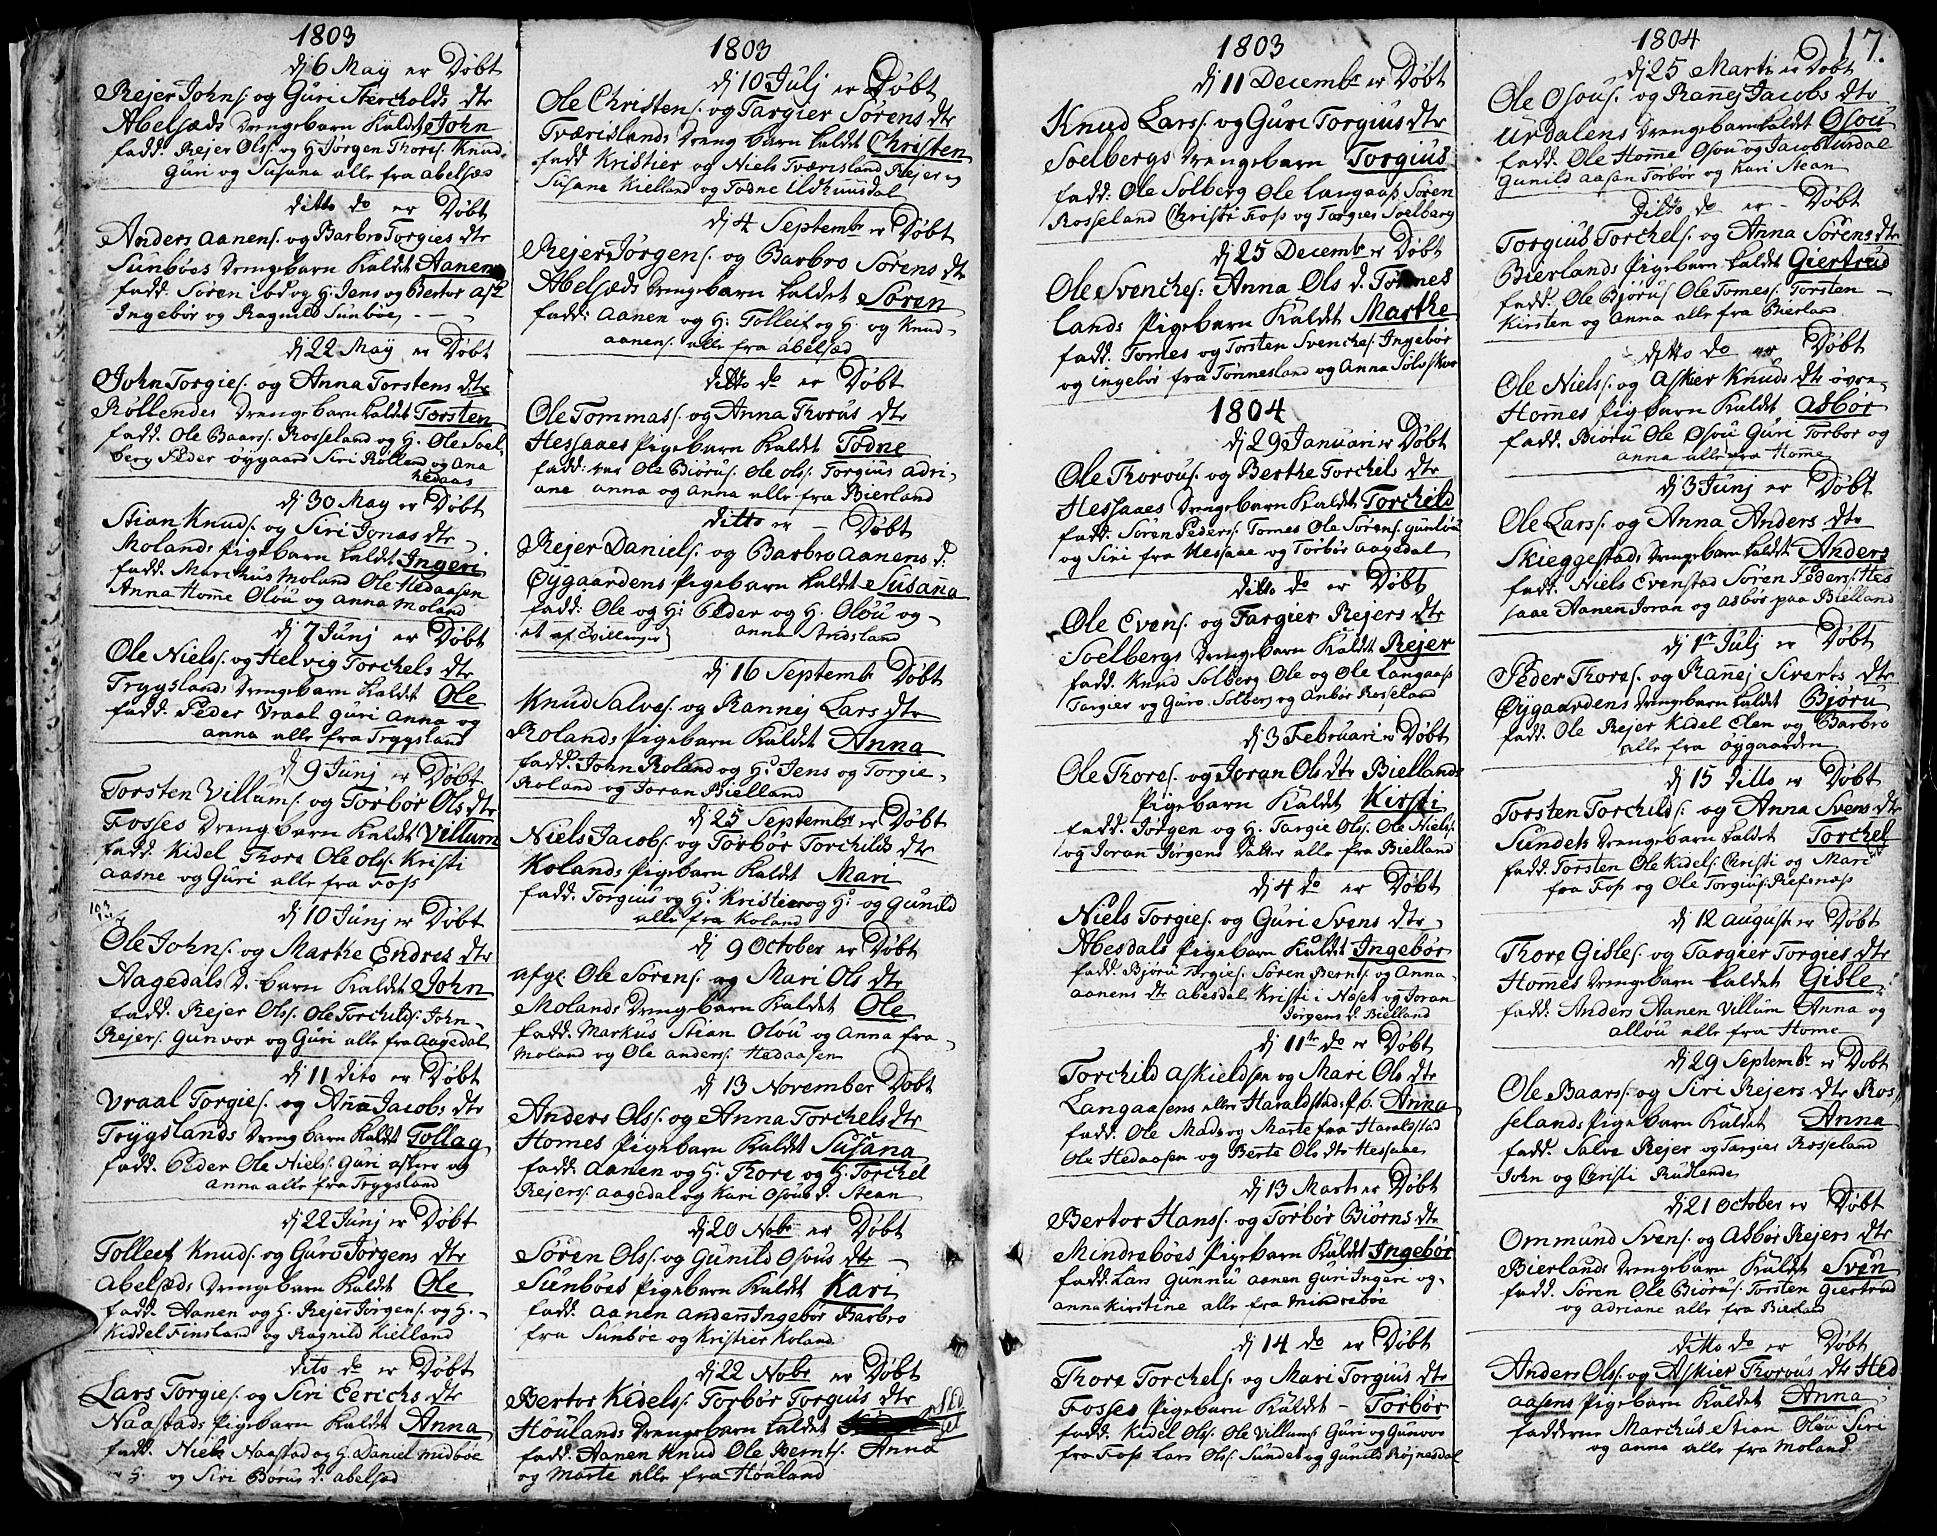 1803
dj 6 May er Døbt
Rejer Johns: og Guri Stercholds dtr
Abelsæds Drengebarn Kaldet John
fadd. Rejer Ols: og H: Jørgen Thores: Knud
Guri og Susana alle fra abelsæs
ditto do er Døbt
Anders Aanens: og Barbro Torgies dtr
Sunbøes Drengebarn Kaldet Aanen
fadd: Søren ibd og H: Jens og Bertor
Ingebør og Ragnild Sunbøe
dj 22 May er Døbt
John Torgies: og Anna Torstens dtr
Røllendes Drengebarn kaldet Torsten
fadd. Ole Baars: Rosseland og H: Ole Soel
berg Peder øygaard Siri Røllen og Ana
Hedaas
dj 30 May er Døbt
Stian Knuds: og Siri Jonas dtr
Molands Pigebarn kaldet Ingeri
fadd. Marchus Moland Ole Hedaasen
Anna Home Oløu og anna Moland
dj 7 Junj er Døbt
Ole Niels: og Helvig Torchels dtr
Trygslands Drengebarn Kaldet Ole
fadd. Peder Vraal Guri Anna og
anna alle fra Trygsland
dj 9 Junj er Døbt
Torsten Villums: og Torbør Ols dtr
Fosses Drengbarn Kaldet Villum
fadd. Kidel Thore Ole Ols: Kristi
aasne og Guri alle fra Foss
dj 10 Junj er Døbt
Ole Johns: og Marthe Endres dtr
Aagedals D. barn Kaldet John
fadd. Rejer Ols: Ole Torchilds: John
Rejers: Gunvor og Guri alle fra Aagedal
dj 11 dito er Døbt
Vraal Torgies: og Anna Jacobs dtr
Trygslands Drengbarn Kaldt Tollag
fadd. Peder Ole Niels: Guri askier og
anna alle fra Trygsland
dj 22 Junj er Døbt
Tolleif Knuds: og Guro Jørgens dtr
Abelsæds Drengebarn Kaldet Ole
fadd. Aanen og H: Rejer Jørgens: og H:
Kiddel Finsland og Ragnild Kielland
dito do er Døbt
Lars Torgies: og Siri Eerichs dtr
Naastads Pigebarn Kaldet Anna
fadd. Niels Naastad og H: Daniel Midbøe
og H: og Siri Borus d. abelsæd
1803
dj 10 Julj er Døbt
Ole Christens: og Targier Sørens dtr
Tværislands Drengbarn kaldet Christen
fadd Kristier og Niels Tværisland Rejer og
Susana Kielland og Todne Udhuusdal
dj 4 Septembr er Døbt
Rejer Jørgens: og Barbro Sørens dtr
Abelsæds Drengebarn kaldet Søren
fadd: Aanen og H: Tolleif og H: og Knud
aanens: alle fra abelsæd
ditto do er Døbt
Ole Tommas: og Anna Thorus dtr
Hessaaes Pigebarn Kaldet Todne
fadd: Ole Biørus: Ole Ols: Torgius Adri
ane anna og Anna alle fra Bierland
ditto er Døbt
Rejer Daniels: og Barbro Aanens d:
Øygaardens Pigebarn kaldet Susana
fadd: Ole og H: Peder og H: Oløu og
et af tvillinger anna Andsland
dj 16 Septemb Døbt
Knud Salves: og Rannej Lars dtr
Rolands Pigebarn Kaldet Anna
fadd: John Roland og H: Jens og Torgie
Roland og Joran Bielland
dj 25 Septembr er Døbt
Niels Jacobs: og Torbør Torchilds dtr
Kolands Pigebarn Kaldet Mari
fadd: Torgius og H: Kristier og H: og Gunild
alle fra Koland
dj 9 October er Døbt
afgl: Ole Sørens: og Mari Ols dtr
Molands Drengebarn Kaldet Ole
fadd. Markus Stian Oløu og Anna fra
Moland og Ole anders: Hedaasen
dj 13 November Døbt
Anders Ols: og Anna Torchels dtr
Homes Pigebarn Kaldet Susana
fadd. Aanen og H: Thore og H: Torchel
Rejers: aagedal og Kari Osous d. Stean
dj 20 Nobr er Døbt
Søren Ols: og Gunild Osous dtr
Sunbøes Pigebarn Kaldet Kari
fadd: Aanen Anders Ingebør Barbro
fra Sunbøe og Kristier Koland
dj 22 Nobr er Døbt
Bertor Kidels: Torbør Torgius dtr
Høulands Drengebarn kaldet
fadd: Aanen Knud Ole Bernts: Anna
og Marte alle fra Høuland
1803
dj 11 Decembr er Døbt
Knud Lars: og Guri Torgius dtr
Soelbergs Drengebarn Torgius
fadd: Ole Solberg Ole Langaas Søren
Rosseland Christi Foss og Targier Soelberg
dj 25 Decembr er Døbt
Ole Svenches: Anna Ols d. Tønnes
lands Pigebarn Kaldet Marthe
fadd: Tomes og Torsten Svenches: Ingebør
og ingebør fra Tønnesland og Anna Soløskar
1804
dj 29 Januari er Døbt
Ole Thorous: og Berthe Torchels dtr
Hessaaes Drengebarn Kaldet Torchild
fadd: Søren Peders: Tomes Ole Sørens: gunløu
og Siri fra Hessaae og Torbør aagedal
ditto do er Døbt
Ole Evens: og Targier Rejers dtr
Soelbergs Drengebarn Kaldet Rejer
fadd. Knud Solberg Ole og Ole Langaas
Targier og Guro Solberg og Anbør Rosseland
dj 3 Februari er Døbt
Ole Thores: og Joran Ols dtr Biellands
Pigebarn Kaldet Kirsti
fadd: Jørgen og H: Targie Ols: Ole Niels:
og Joran Jørgens datter alle fra Bielland
dj 4 do er Døbt
Niels Torgies: og Guri Svens dtr
Abesdals Pigebarn Kaldet Ingebør
fadd: Bjøru Torgies: Søren Bernts: og Anna
aanens dtr abesdal Kristi i Næset og Joran
Jørgens d. Bielland
dj 11te do er Døbt
Torchild Askieldsen og Mari Ols dtr
Langaasens eller Haraldstads p.b. Anna
fadd: Ole Mads og Marte fra Haraldstad
Ole Hedaasen og Berte Ols dtr Hessaae
dj 13 Marts er Døbt
Bertor Hans: og Torbør Biørns dtr
Mindrebøes Pigebarn Kaldet Ingebør
fadd: Lars Gunnu aanen Guri Ingari og
anna kirstine alle fra Mindrebøe
dj 14 do er Døbt
Thore Torchels: og Mari Torgius dtr
Fosses Pigebarn Kaldet Torbør
fadd: Kidel Ols: Ole Villums: Guri og Gunvor
fra Foss Lars Ols: Sundet og Gunild Røjnesdal
1804 17.
dj 25 Marti er Døbt
Ole Osous: og Rannej Jacobs dtr
Urdalens Drengebarn kaldet Osou
fadd. Ole Home Osou og Jacob Urdal
Gunild aasen Torbør og Kari Stean
Ditto do er Døbt
Torgius Torchels: og Anna Sørens dtr
Bierlands Pigebarn kaldet Giertrud
fadd: Ole Bjørus Ole Tomes: Torsten
Kirsten og Anna alle fra Bierland
ditto do er Døbt
Ole Niels: og Askier Knuds dtr øvre
Homes Pigebarn Kaldet Asbør
fadd: Biøru Ole Osou Guri Torbor og
anna alle fra Home
dj 3 Junj er Døbt
Ole Lars: og Anna Anders dtr
Skieggestads Drengebarn kaldet Anders
fadd. Niels Evenstad Søren Peders: Hes
saae Aanen Joran og Asbør paa Bielland
dj 1te Julj er Døbt
Peder Thores: og Rannej Siverts dtr
Øygaardens Drengebarn kaldet Bjøru
fadd. Ole Rejer Kidel Elen og Barbro
alle fra Øygaarden
dj 15 ditto er Døbt
Torsten Torchilds: og Anna Svens dtr
Sundets Drengebarn kaldet Torchel
fadd: Torsten Ole Kidels: Christi og Mari
fra Foss og Ole Torgius: Refsnæs
dj 12 august er Døbt
Thore Gisles: og Targier Torgies dtr
Homes Drengebarn kaldet Gisle
fadd: Anders Aanen Villum Anna og
alløu alle fra Home
dj 29 Septembr er Døbt
Ole Baars: og Siri Rejers dtr Ros
selands Pigebarn Kaldet Anna
fadd: Salve Rejer og Targier Rosseland
John og Christi Rudlende
dj 21 October er Døbt
Ommund Svens: og Asbør Rejers dtr
Bierlands Drengebarn Kaldet Sven
fadd: Søren Ole Biørus: Torsten Giertrud
og Adriane alle fra Bierland
ditto do er Døbt
Anders Ols: og Askier Thorous dtr Hed
aasens Pigebarn Kaldet Anna
fadderne Marchus Stian Oløu Siri
og anna alle fra Moland